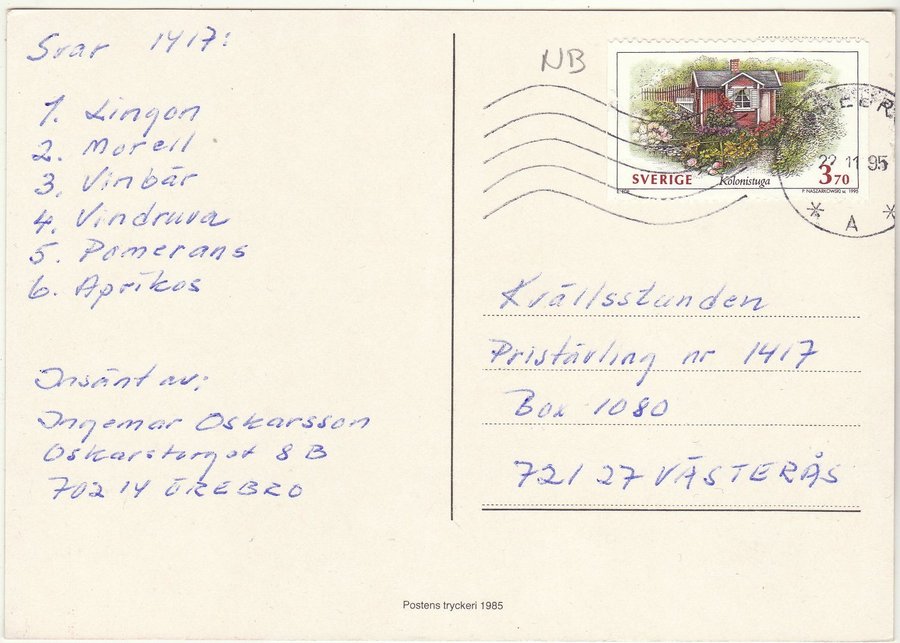 Svar 1417:
1. Lingon
2. Morell
3. Vinbär
4. Vindruva
5. Pomerans
6. Aprikos
Insänt av:
Ingemar Oskarsson
Oskarstorget 8 B
702 14 ÖREBRO
NB
SVERIGE Kolonistuga 3 70
P. NASZARKOWSKI sc. 1995
22 11 95
* A *
Kvällsstunden
Pristävling nr 1417
Box 1080
721 27 VÄSTERÅS
Postens tryckeri 1985